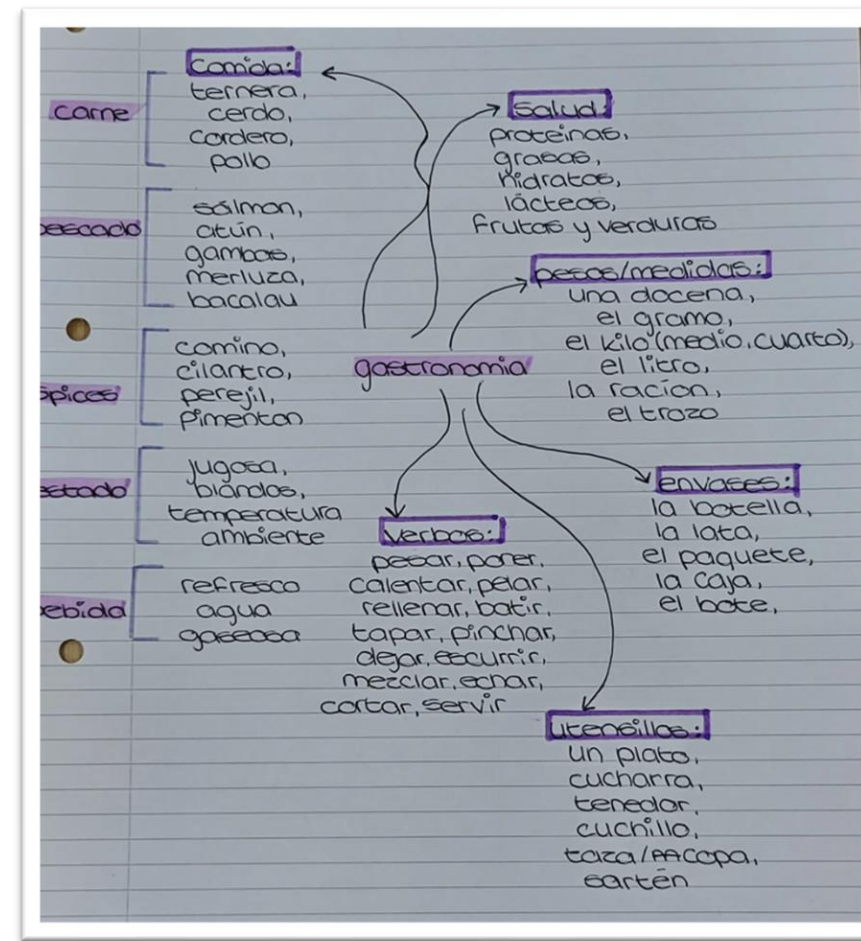 comida:
carne
ternera,
cerdo,
cordero,
pollo
pescado
sálmon,
atún,
gambas,
merluza,
bacalau
spices
comino,
cilantro,
perejil,
pimenton
estado
jugosa,
blandos,
temperatura
ambiente
bebida
refresco
agua
gaseosa
gastronomia
salud:
proteinas,
grasas,
hidratos,
lácteos,
frutas y verduras
pesos/medidas:
una docena,
el gramo,
el kilo (medio, cuarto),
el litro,
la racíon,
el trozo
envases:
la botella,
la lata,
el paquete,
la caja,
el bote,
verbos:
pesar, poner,
calentar, pelar,
rellenar, batir,
tapar, pinchar,
dejar, escurrir,
mezclar, echar,
cortar, servir
utensillos:
un plato,
cucharra,
tenedor,
cuchillo,
taza/copa,
sartén